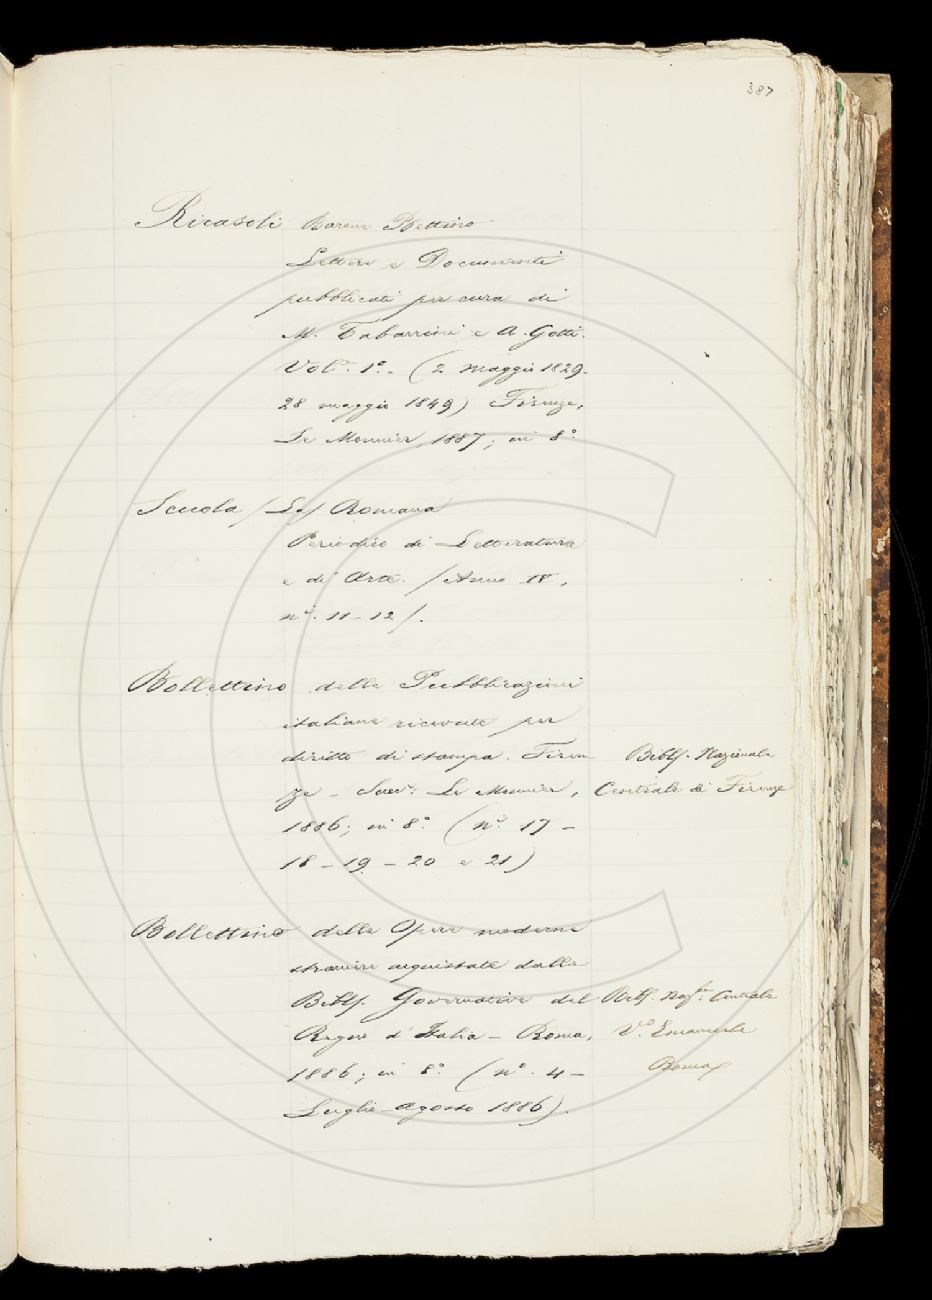 387
Ricasoli Barone Bettino
Lettere e Documenti
pubblicati per cura di
M. Tabarrini e A. Gotti.
Vol.e 1º. (2 maggio 1829-
28 maggio 1849) Firenze,
Le Monnier, 1887; in 8º
Scuola /La/ Romana
Periodico di Letteratura
e di Arte. /Anno IV,
ni. 11-12/.
Bollettino delle Pubblicazioni
italiane ricevute per
diritto di stampa. Firen-
ze - Succ.i Le Monnier,
1886; in 8º (ni. 17 -
18 - 19 - 20 e 21)
Bibl. Nazionale
Centrale di Firenze
Bollettino delle Opere moderne
straniere acquistate dalle
Bibl. Governative del
Regno d'Italia - Roma,
1886; in 8º (nº. 4 -
Luglio-agosto 1886).
Bibl. Naz.le Centrale
V.º Emanuele
Roma